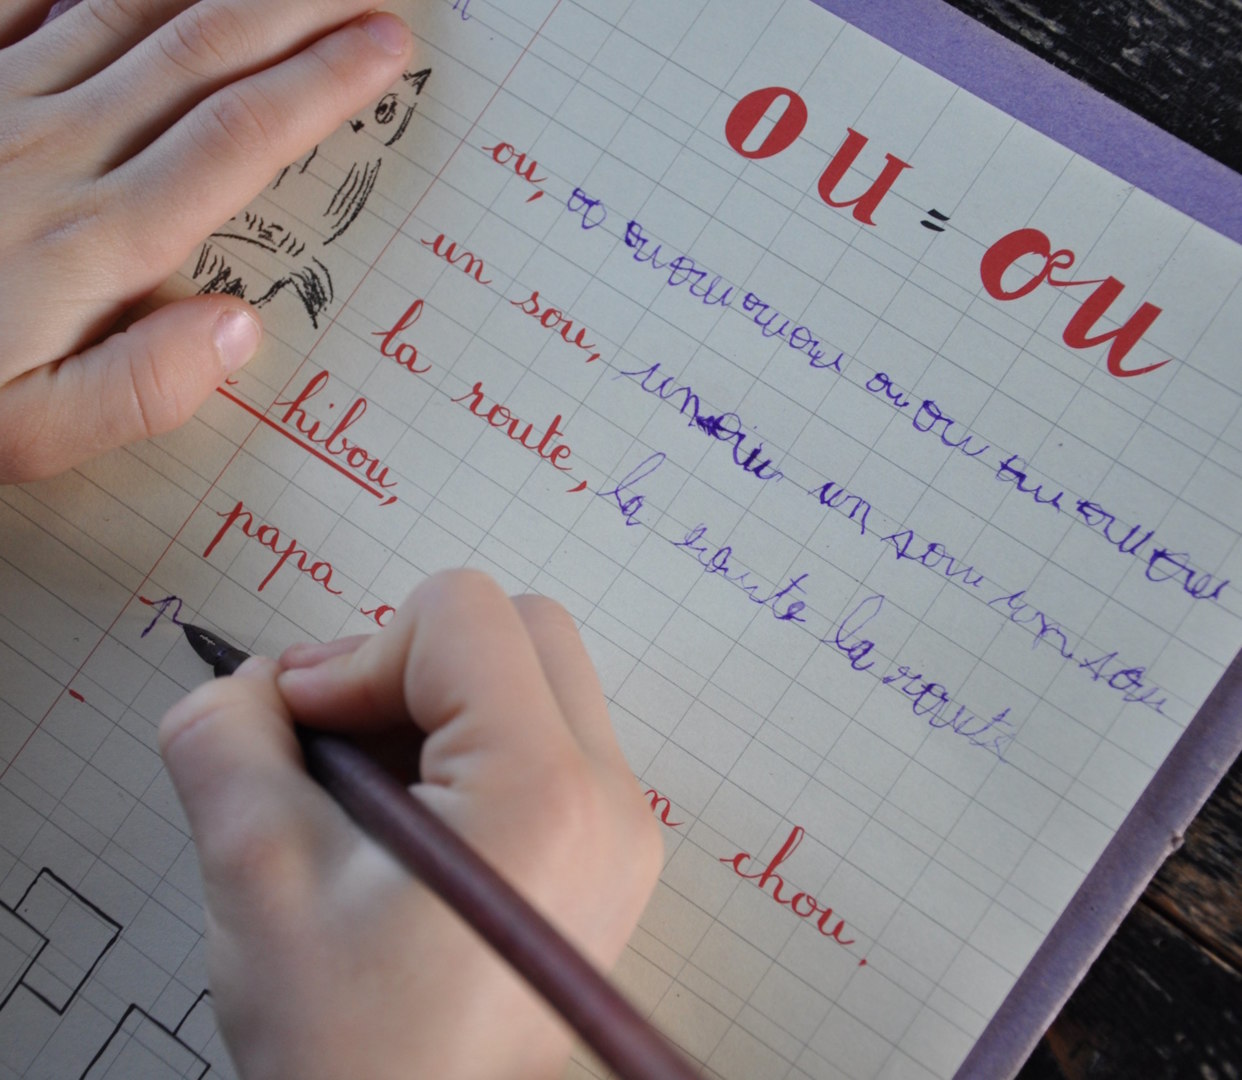 ou = ou
ou, ou ou ou ou ou ou ou ou ou ou ou ou
un sou, un sou un sou un sou
la route, la route la route
hibou,
papa
n chou.
p